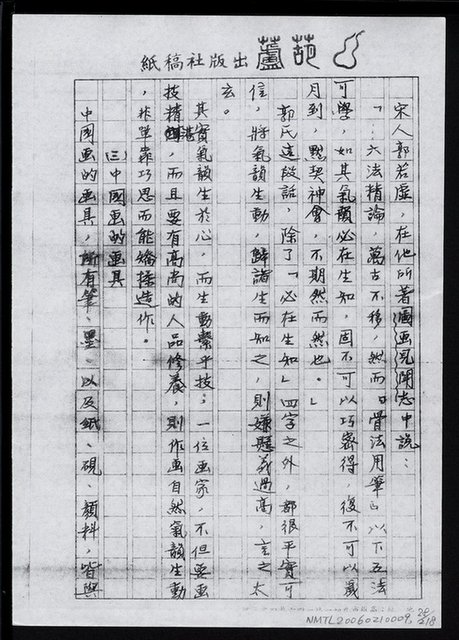 葫蘆出版社稿紙
宋人郭若虛，在他所著圖画見聞志中說：
「…六法精論，萬古不移，然而『骨法用筆』以下五法
可學，如其氣韻必在生知，固不可以巧密得，復不可以歲
月到，默契神會，不期然而然也。」
郭氏這段話，除了「必在生知」四字之外，都很平實可
信，將氣韻生動，歸諸生而知之，則嫌懸義過高，言之太
玄。
其實氣韻生於心，而生動繫乎技；一位画家，不但要画
技精湛，而且要有高尚的人品修養，則作画自然氣韻生動
，非單靠巧思而能矯揉造作。
(三)中國画的画具
中國画的画具，所有筆、墨、以及紙、硯、顏料，皆與
NMTL20060210009